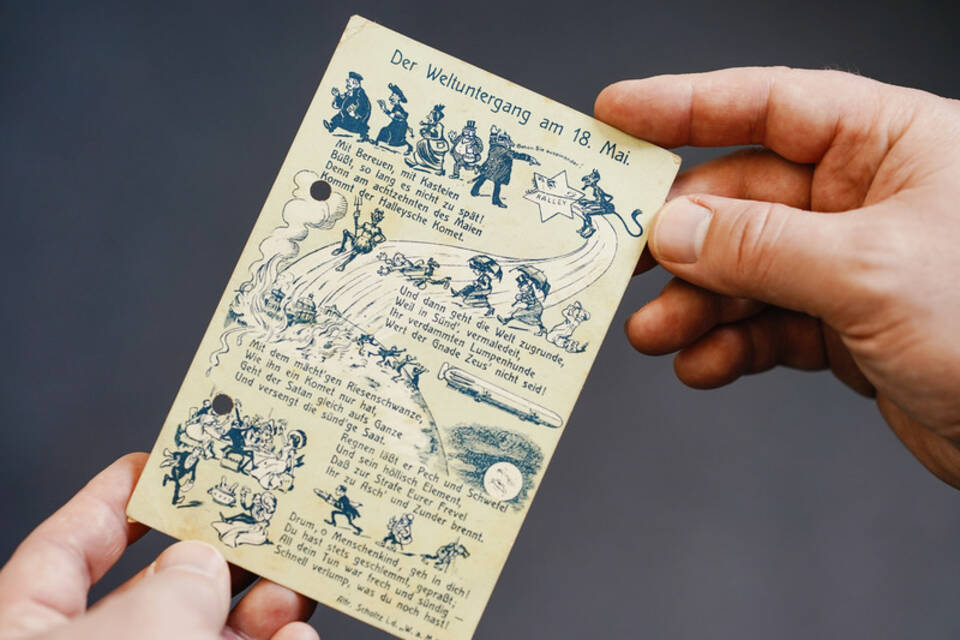 Der Weltuntergang am 18. Mai.
Gehen Sie auseinander!
HALLEY
Mit Bereuen, mit Kasteien
Büßt, so lang es nicht zu spät!
Denn am achtzehnten des Maien
Kommt der Halleysche Komet.
Und dann geht die Welt zugrunde,
Weil in Sünd', vermaledeit,
Ihr verdammten Lumpenhunde
Wert der Gnade Zeus' nicht seid!
Mit dem mächt'gen Riesenschwanze,
Wie ihn ein Komet nur hat,
Geht der Satan gleich aufs Ganze
Und versengt die sünd'ge Saat.
Regnen läßt er Pech und Schwefel
Und sein höllisch Element,
Daß zur Strafe Eurer Frevel
Ihr zu Asch' und Zunder brennt.
Drum, o Menschenkind, geh in dich!
Du hast stets geschlemmt, gepraßt;
All dein Tun war frech und sündig —
Schnell verlump, was du noch hast!
Alfr. Scholtz i. d. „W. a. M.